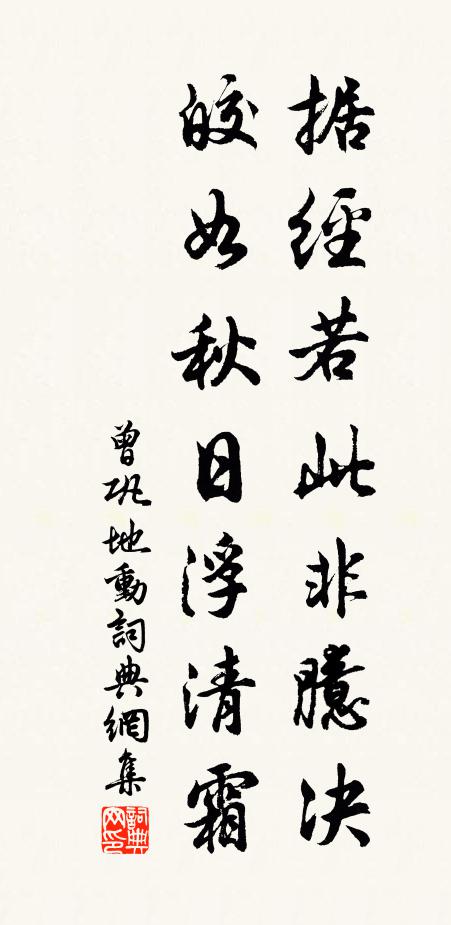 据經若此非臆決
皎如秋日浮清霜
曾巩地動詞典網集
詞典网印